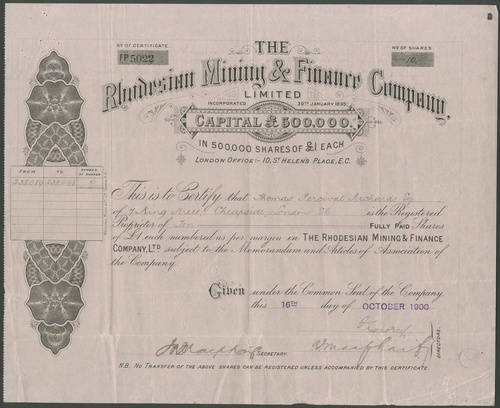 No OF CERTIFICATE.
FP 5022
No OF SHARES
10
THE
Rhodesian Mining & Finance Company,
LIMITED
INCORPORATED 30TH JANUARY 1895.
CAPITAL £500,000.
IN 500,000 SHARES OF £1 EACH
LONDON OFFICE:- 10, ST HELEN'S PLACE, E.C.
FROM TO NUMBER OF SHARES
This is to Certify that Thomas Percival
of 7 King Street, Cheapside London EC is the Registered
Proprietor of Ten FULLY PAID Shares
of £1 each numbered as per margin in THE RHODESIAN MINING & FINANCE
COMPANY, LTD subject to the Memorandum and Articles of Association of
the Company.
Given under the Common Seal of the Company
this 16TH day of OCTOBER 1900
SECRETARY.
DIRECTORS.
N.B. NO TRANSFER OF THE ABOVE SHARES CAN BE REGISTERED UNLESS ACCOMPANIED BY THIS CERTIFICATE.